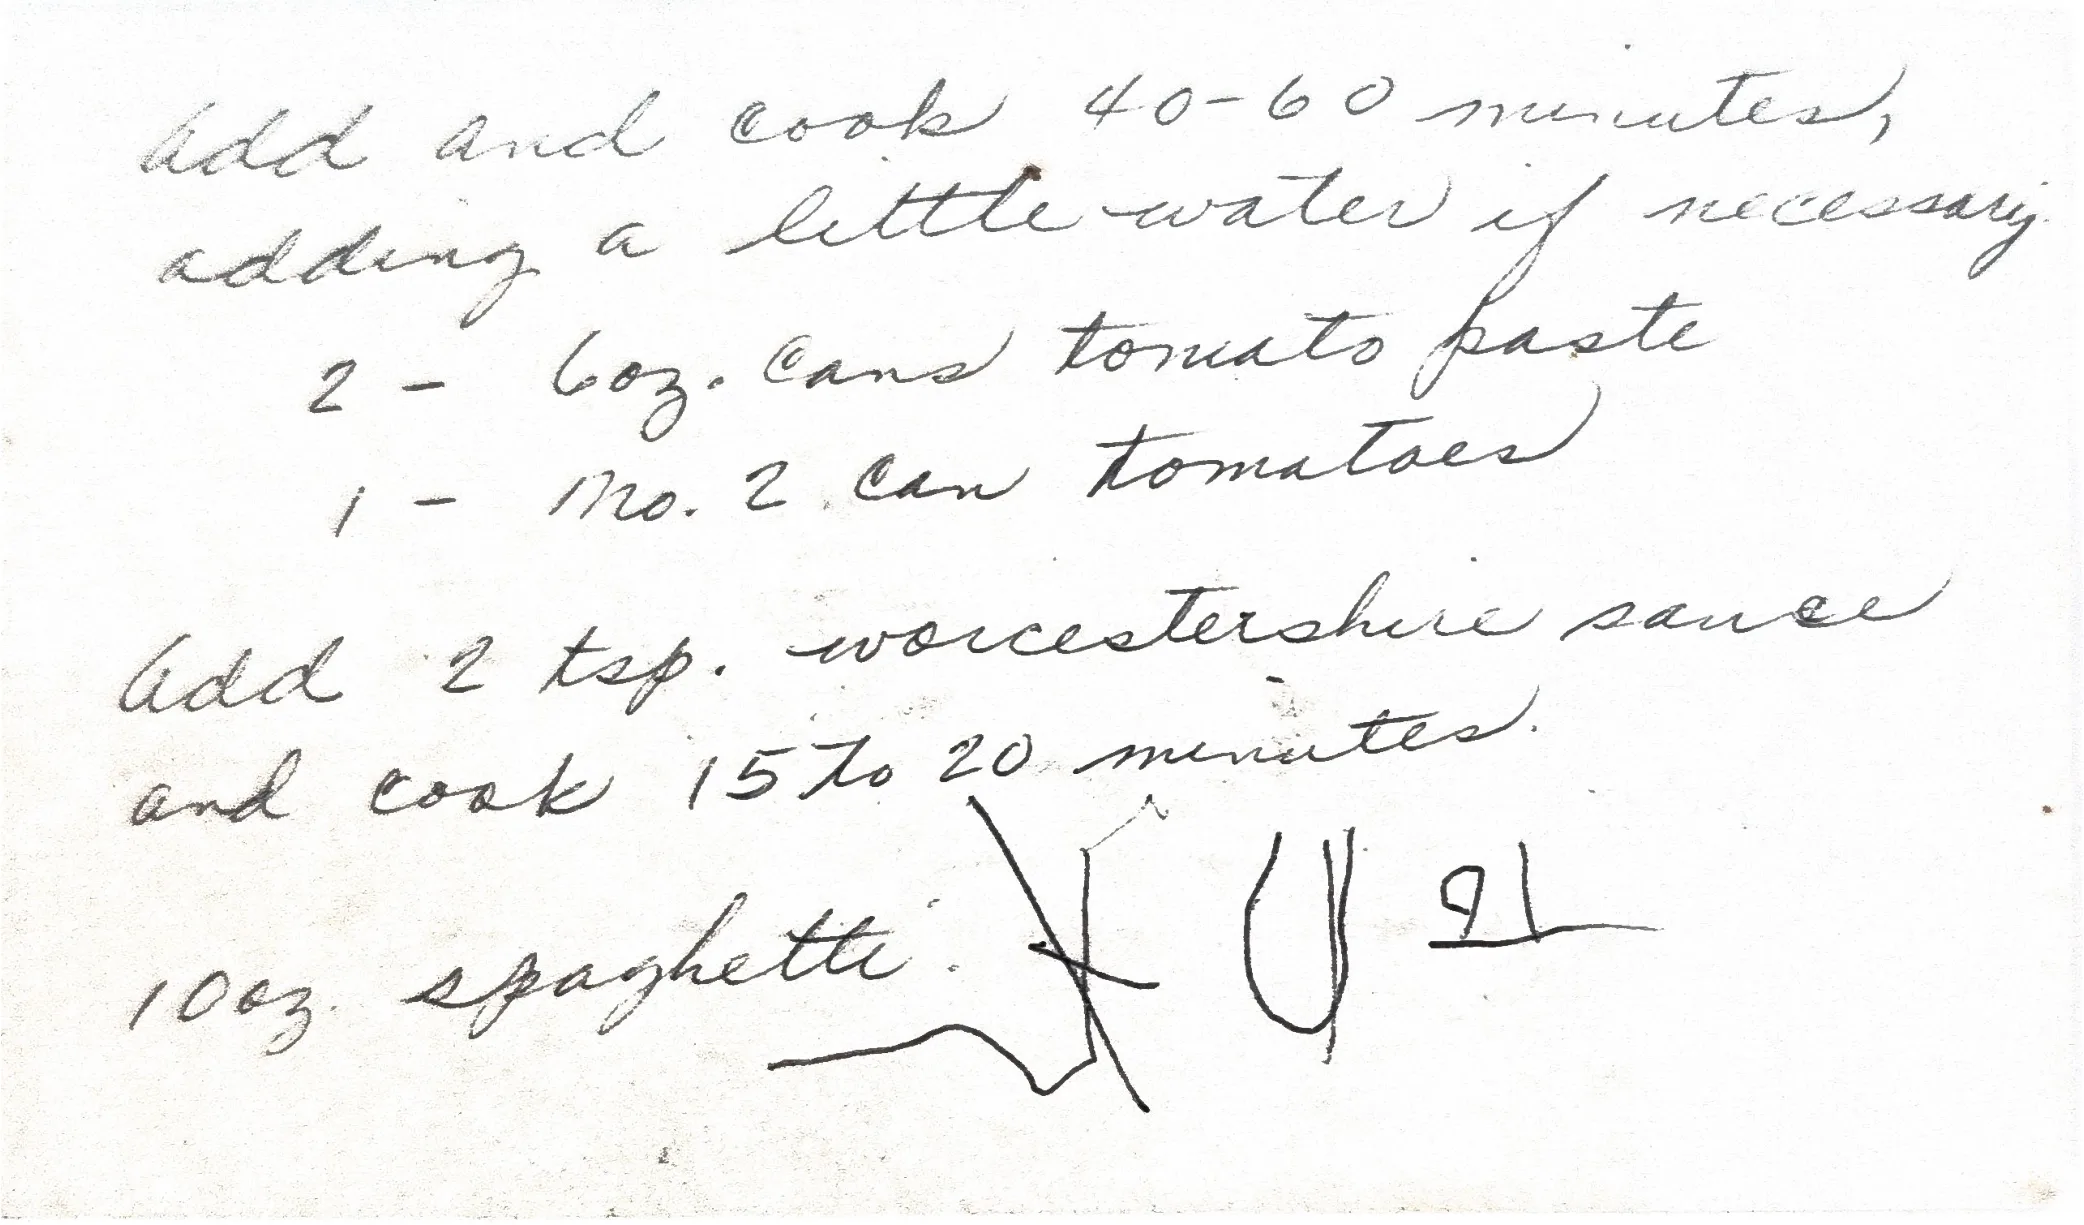 Add and cook 40-60 minutes,
adding a little water if necessary.
2 - 6oz. cans tomato paste
1 - No. 2 can tomatoes
Add 2 tsp. worcestershire sauce
and cook 15 to 20 minutes.
10oz. spaghetti.